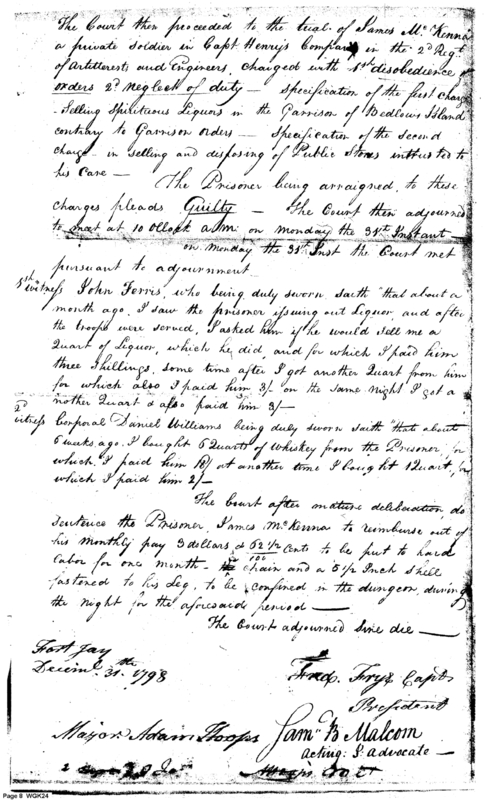 The Court then proceeded to the trial of James McKenna
a private soldier in Capt Henry's Company in the 2d Regt
of Artillerists and Engineers, charged with 1st disobedience of
orders 2d neglect of duty — Specification of the first charge
- Selling Spirituous Liquors in the Garrison of Bedlows Island
contrary to Garrison orders — Specification of the second
charge - in selling and disposing of Public Stores intrusted to
his care —
The Prisoner being arraigned, to these
charges pleads Guilty — The Court then adjourned
to meet at 10 oClock a.m. on monday the 31st Instant —
on monday the 31st Inst the Court met
pursuant to adjournment
1st witness John Ferris, who being duly sworn saith "that about a
month ago, I saw the prisoner issuing out Liquor, and after
the troops were served, I asked him if he would sell me a
Quart of Liquor, which he did, and for which I paid him
three shillings, some time after I got another Quart from him
for which also I paid him 3/- on the same night I got a
nother Quart & also paid him 3/-
2d witness Corporal Daniel Williams being duly sworn saith "that about
6 weeks ago. I bought 6 Quarts of Whiskey from the Prisoner, for
which I paid him 18/ at another time I bought 1 Quart, for
which I paid him 2/-
The Court after mature deliberation, do
Sentence the Prisoner, James McKenna to reimburse out of
his monthly pay 3 dollars & 62 1/2/100 Cents to be put to hard
labor for one month - chain and a 5 1/2 Inch shell
fastened to his leg, to be confined in the dungeon, during
the night for the aforesaid period —
The Court adjourned Sine die —
Fort Jay
Decemr. 31.th 1798
Fred. Frye Capt
President
Major Adam Hoops
Saml B Malcom
acting J. advocate —
Page 8 WGK24